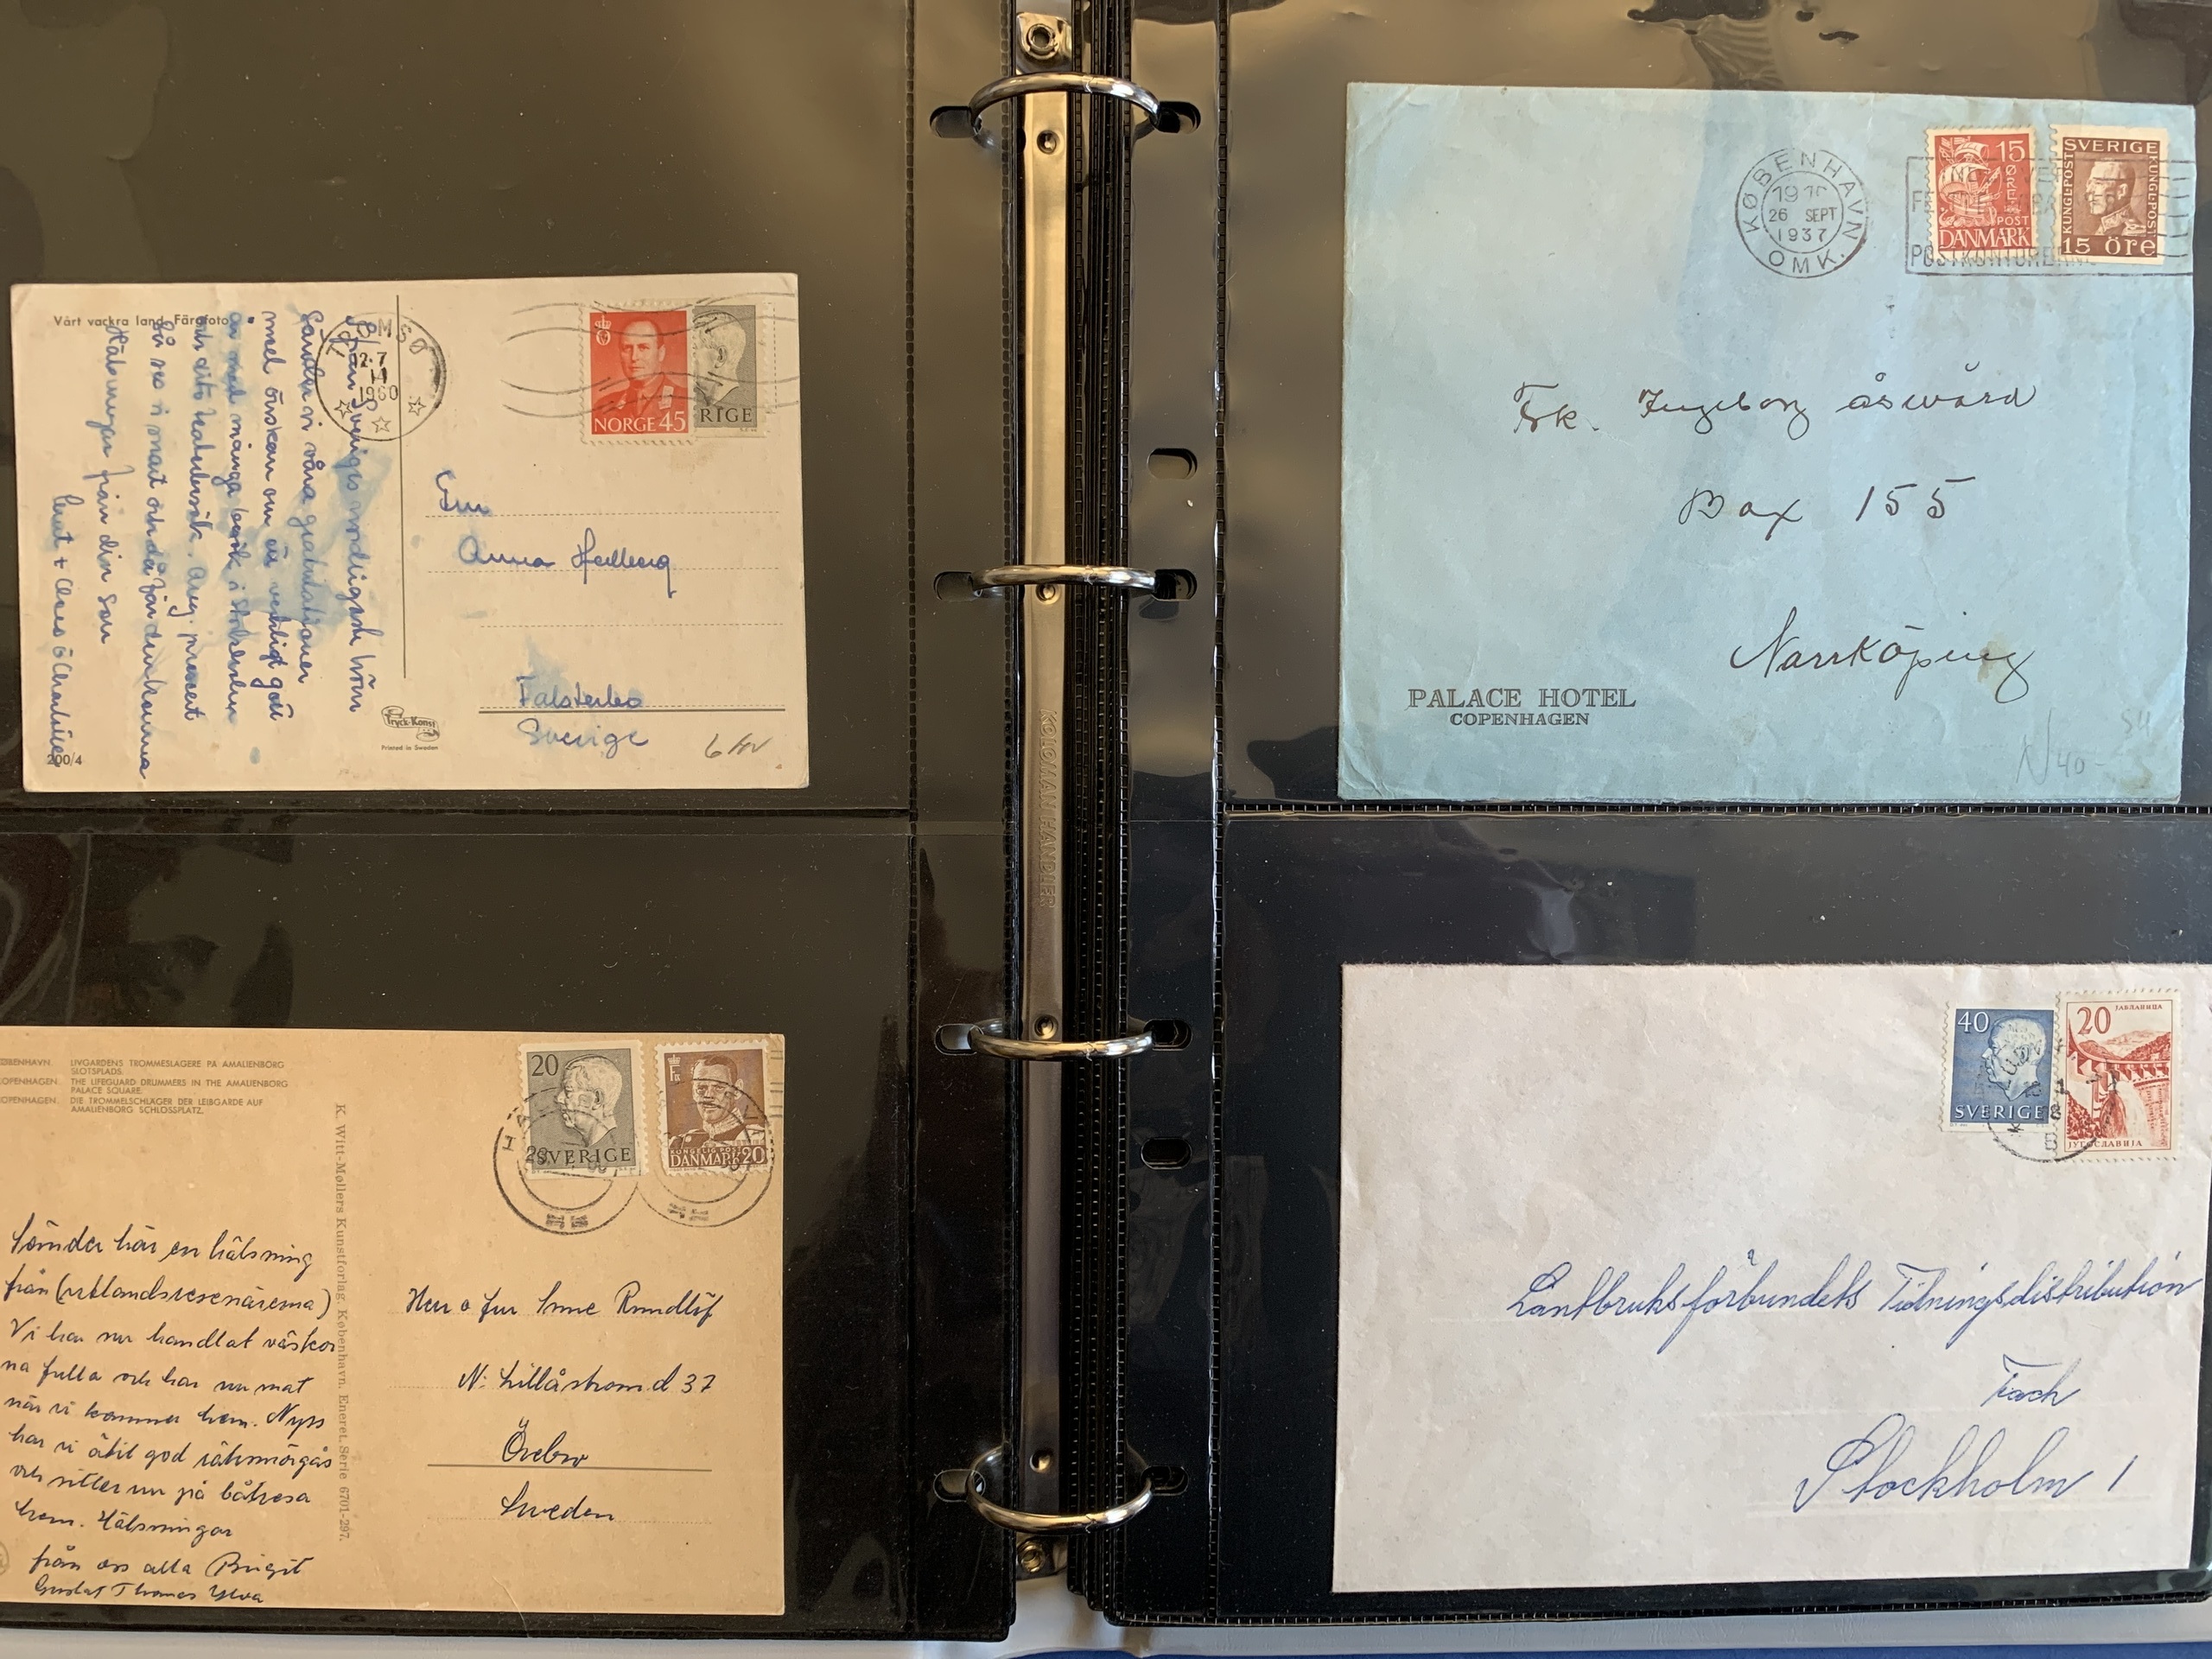 Vårt vackra land Färgfoto
TROMSØ
1960
NORGE 45
RIGE
Från Sveriges nordligaste hörn
sänder vi våra gratulationer
med önskan om en verkligt god
med många besök i
Aug. prosent
Hälsningar från din son
200/4
Tryck-Konst
Printed in Sweden
Anna Hedberg
Falsterbo
Sverige
6 kr
KØBENHAVN
26 SEPT
1937
OMK.
15
ØRE
POST
DANMARK
SVERIGE
KUNGL·POST
KUNGL·POST
15 öre
POSTKONTORERNE
Frk. Ingeborg Åswärd
Box 155
Norrköping
PALACE HOTEL
COPENHAGEN
40-
KOLOMAN HANDLER
LIVGARDENS TROMMESLAGERE PÅ AMALIENBORG
SLOTSPLADS.
THE LIFEGUARD DRUMMERS IN THE AMALIENBORG
PALACE SQUARE.
DIE TROMMELSCHLÄGER DER LEIBGARDE AUF
AMALIENBORG SCHLOSSPLATZ.
K. Witt-Møllers Kunstforlag. København. Eneret. Serie 6701-297.
20
SVERIGE
DANMARK 20
Sänder här en hälsning
från (utlandsresenärerna)
Vi har nu handlat väskor
na fulla och har nu mat
när vi kommer hem. Nyss
har vi ätit god räksmörgås
och sitter nu på båtresa
hem. Hälsningar
från oss alla Birgit
Gustaf Thomas Ylva
Herr o fru Rundlöf
N. Lillåstrand 37
Örebro
Sweden
40
SVERIGE
ЈАБЛАНИЦА
20
ЈУГОСЛАВИЈА
Lantbruksförbundets Tidningsdistribution
Fach
Stockholm 1